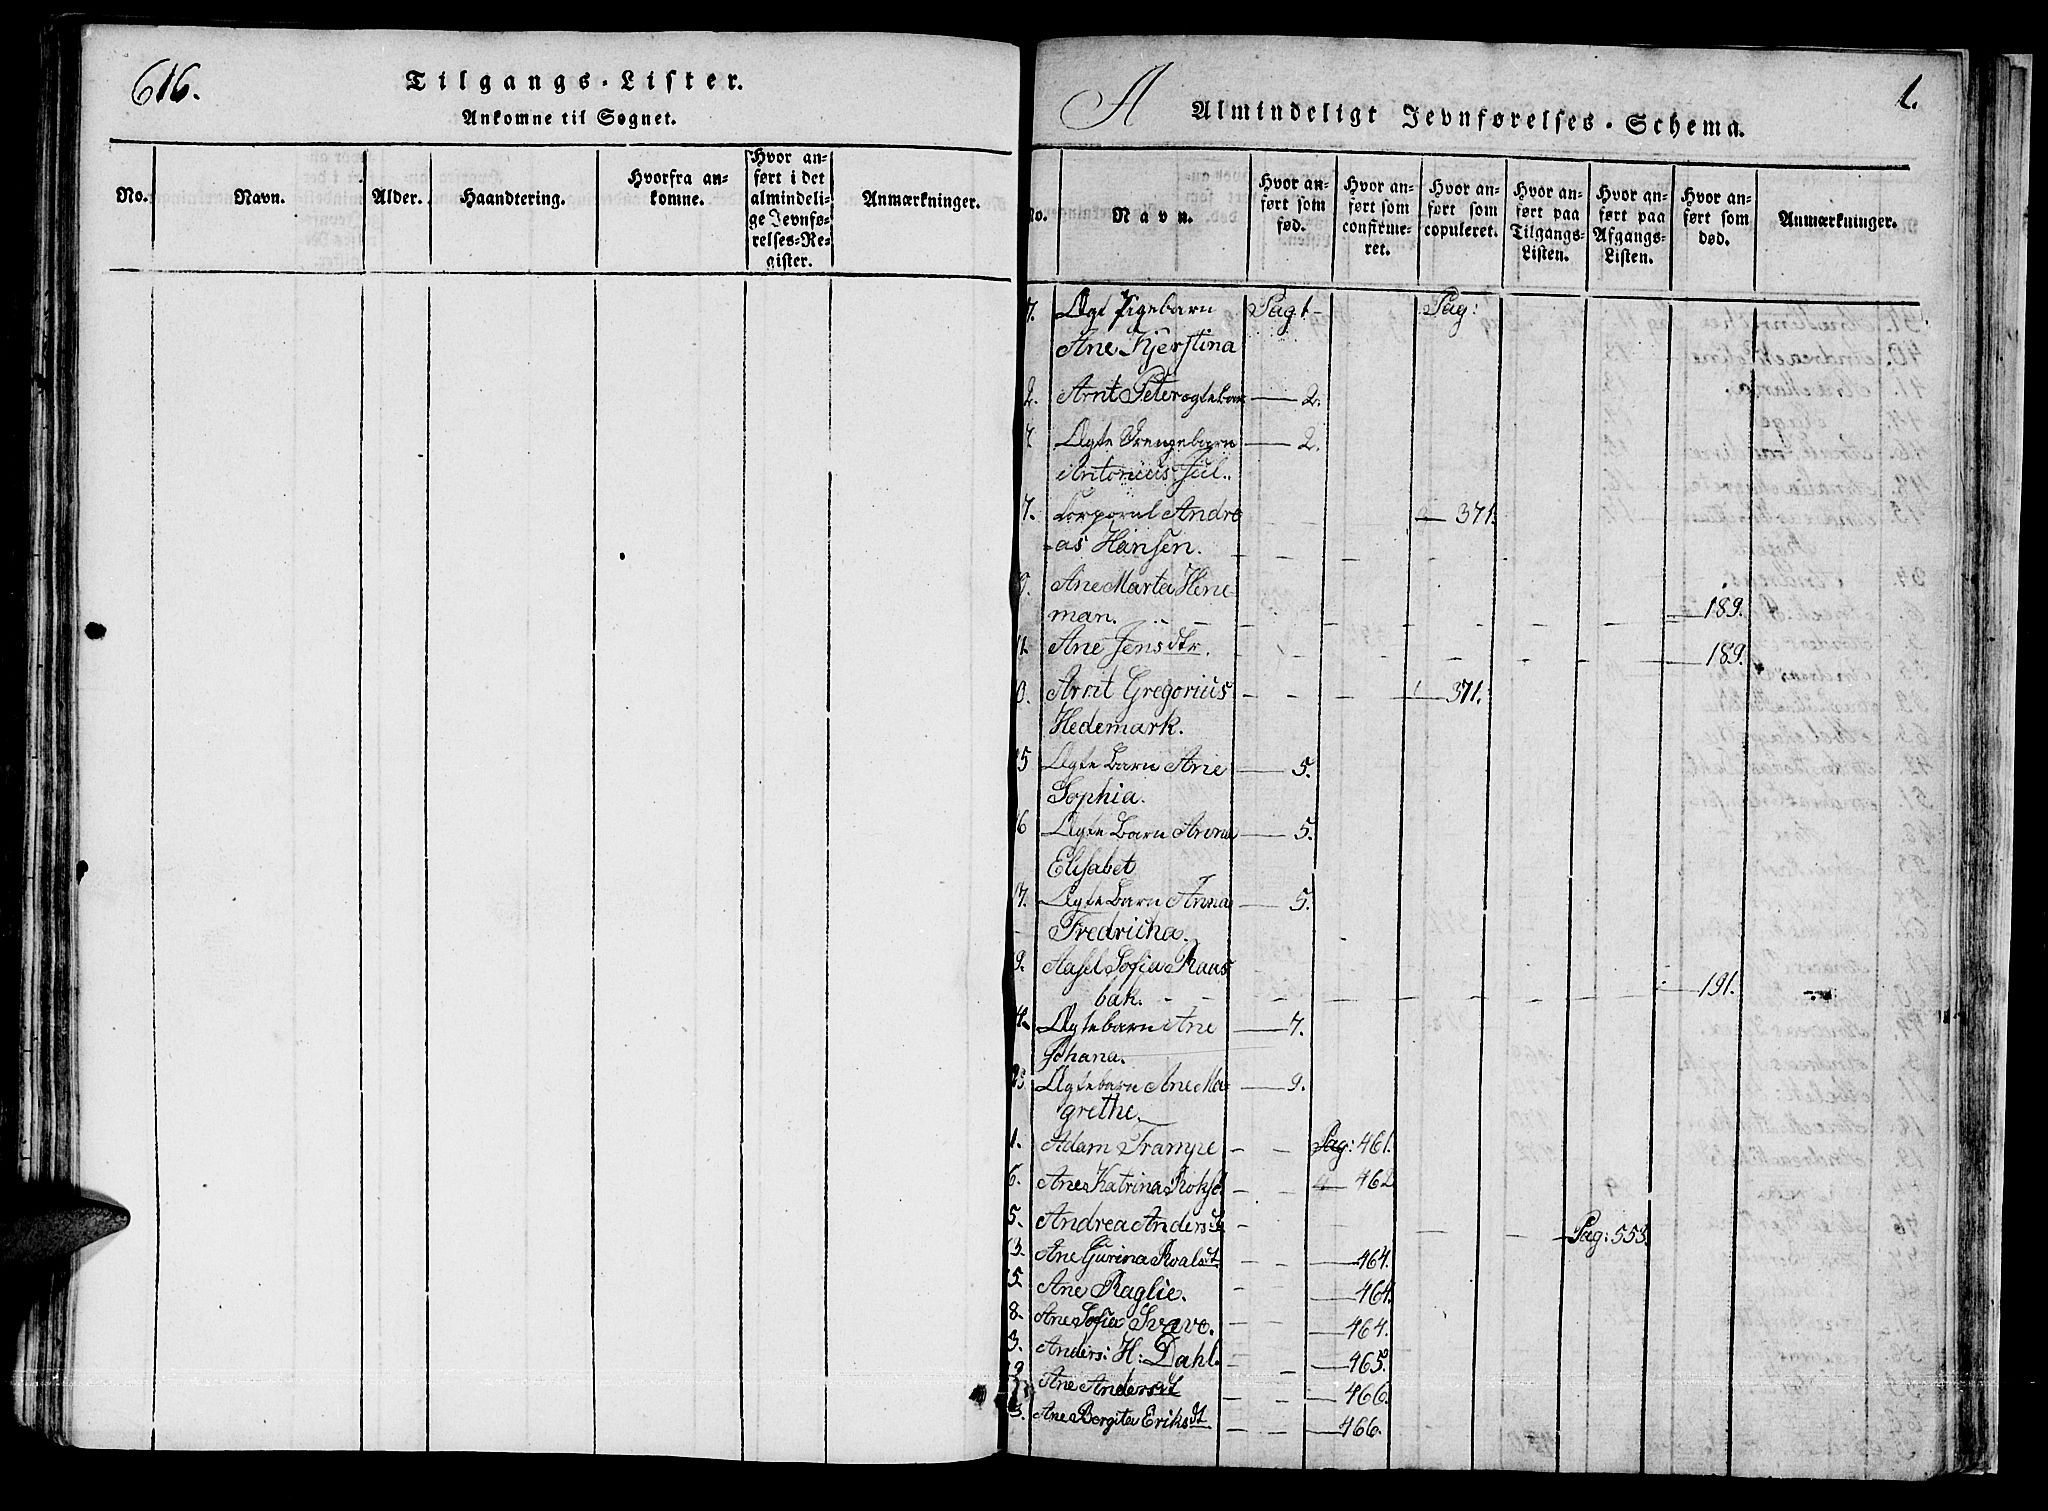 616.
Tilgangs-Lister.
Ankomne til Sognet.
No.
Navn.
Alder.
Haandtering.
Hvorfra an-
komne.
Hvor an-
ført i det
almindeli-
ge Jevnfø-
relses-Re-
gister.
Anmærkninger.
A
1.
Almindeligt Jevnførelses-Schema.
No.
Navn.
Hvor an-
ført som
fød.
Hvor an-
ført som
confirme-
ret.
Hvor an-
ført som
copuleret.
Hvor an-
ført paa
Tilgangs-
Listen.
Hvor an-
ført paa
Afgangs-
Listen.
Hvor an-
ført som
død.
Anmærkninger.
7. Ægt Pigebarn Pag 1 Pag:
Ane Kjerstina
2. Arnt Peter ægtebarn 2.
7 Ægte Drengebarn 2.
Antonius Jul..
7. Corporal Andre 371.
as Hansen.
9. Ane Marta Hene-
man. 189.
1. Ane Jensdtr. 189.
0. Arnt Gregorius 371.
Hedemark.
5 Ægte Barn Ane 5.
Sophia.
6 Ægte Barn Anna 5.
Elisabet
7. Ægte Barn Anna 5.
Fredricha.
9. Aasel Sofia Raus
bak. 191.
4. Ægtebarn Ane 7.
Johana.
25. Ægtebarn Ane Ma- 9.
grethe.
1. Adam Trampe Pag: 461.
6. Ane Katrina 462
5. Andrea Anders Pag: 553.
3. Ane Gurina Roalsdt 464.
5. Ane Raglie. 464.
8. Ane Sofia Svave. 464.
3. Anders: H: Dahl. 465.
Ane Andersdt 466.
3. Ane Bergita Eriksdt 466.